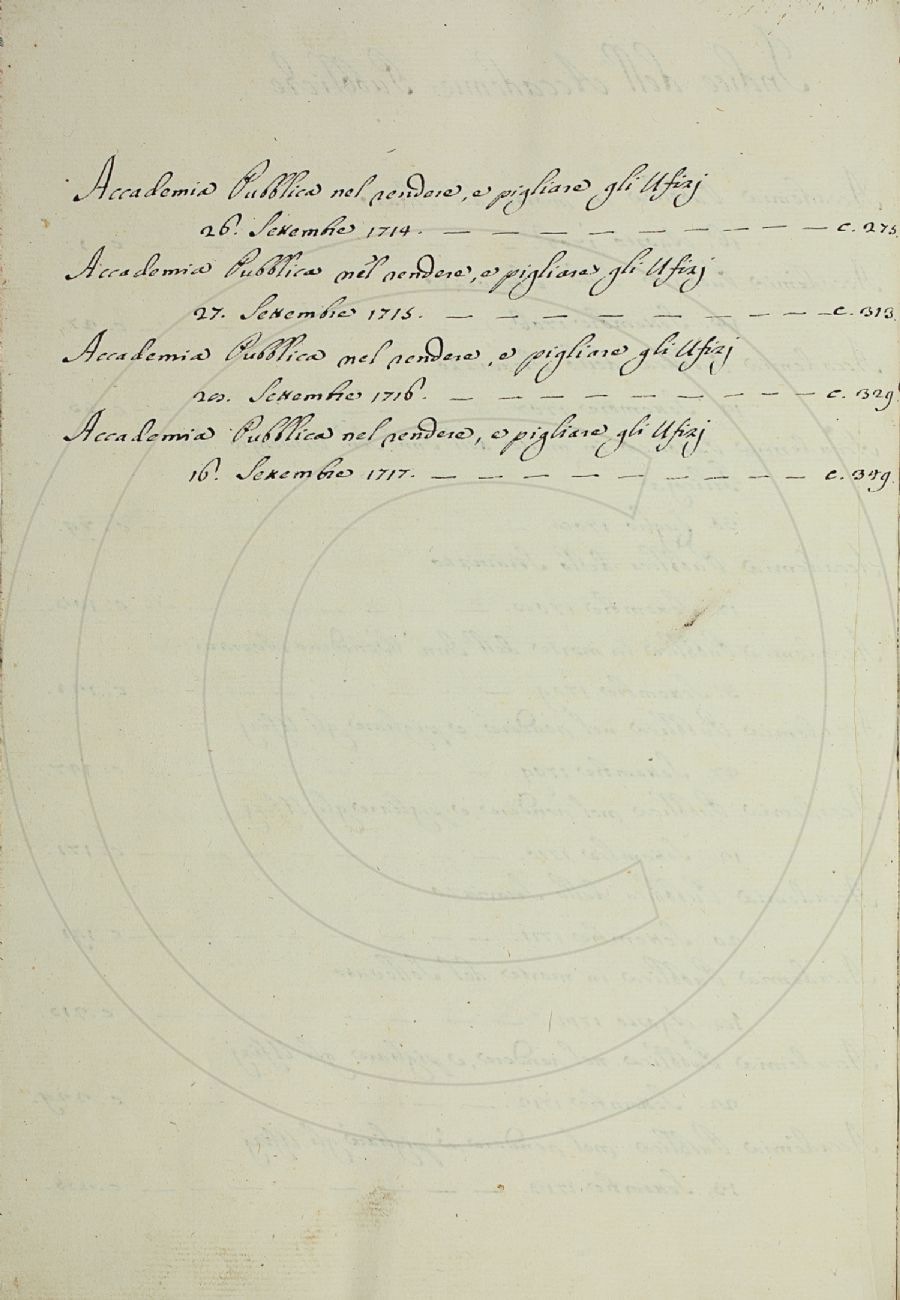 Accademia Pubblica nel rendere, e pigliare gli Ufizj
26. Settembre 1714. — — — — — — — — — c. 275.
Accademia Pubblica nel rendere, e pigliare gli Ufizj
27. Settembre 1715. — — — — — — — — — c. 313.
Accademia Pubblica nel rendere, e pigliare gli Ufizj
Settembre 1716. — — — — — — — — — c. 329.
Accademia Pubblica nel rendere, e pigliare gli Ufizj
16. Settembre 1717. — — — — — — — — — c. 349.